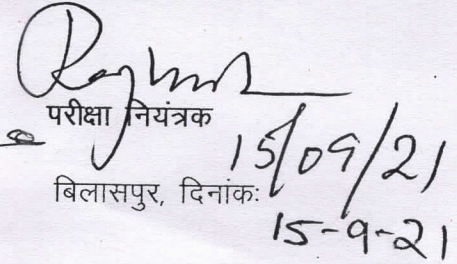 परीक्षा नियंत्रक
15/09/21
बिलासपुर, दिनांकः
15-9-21